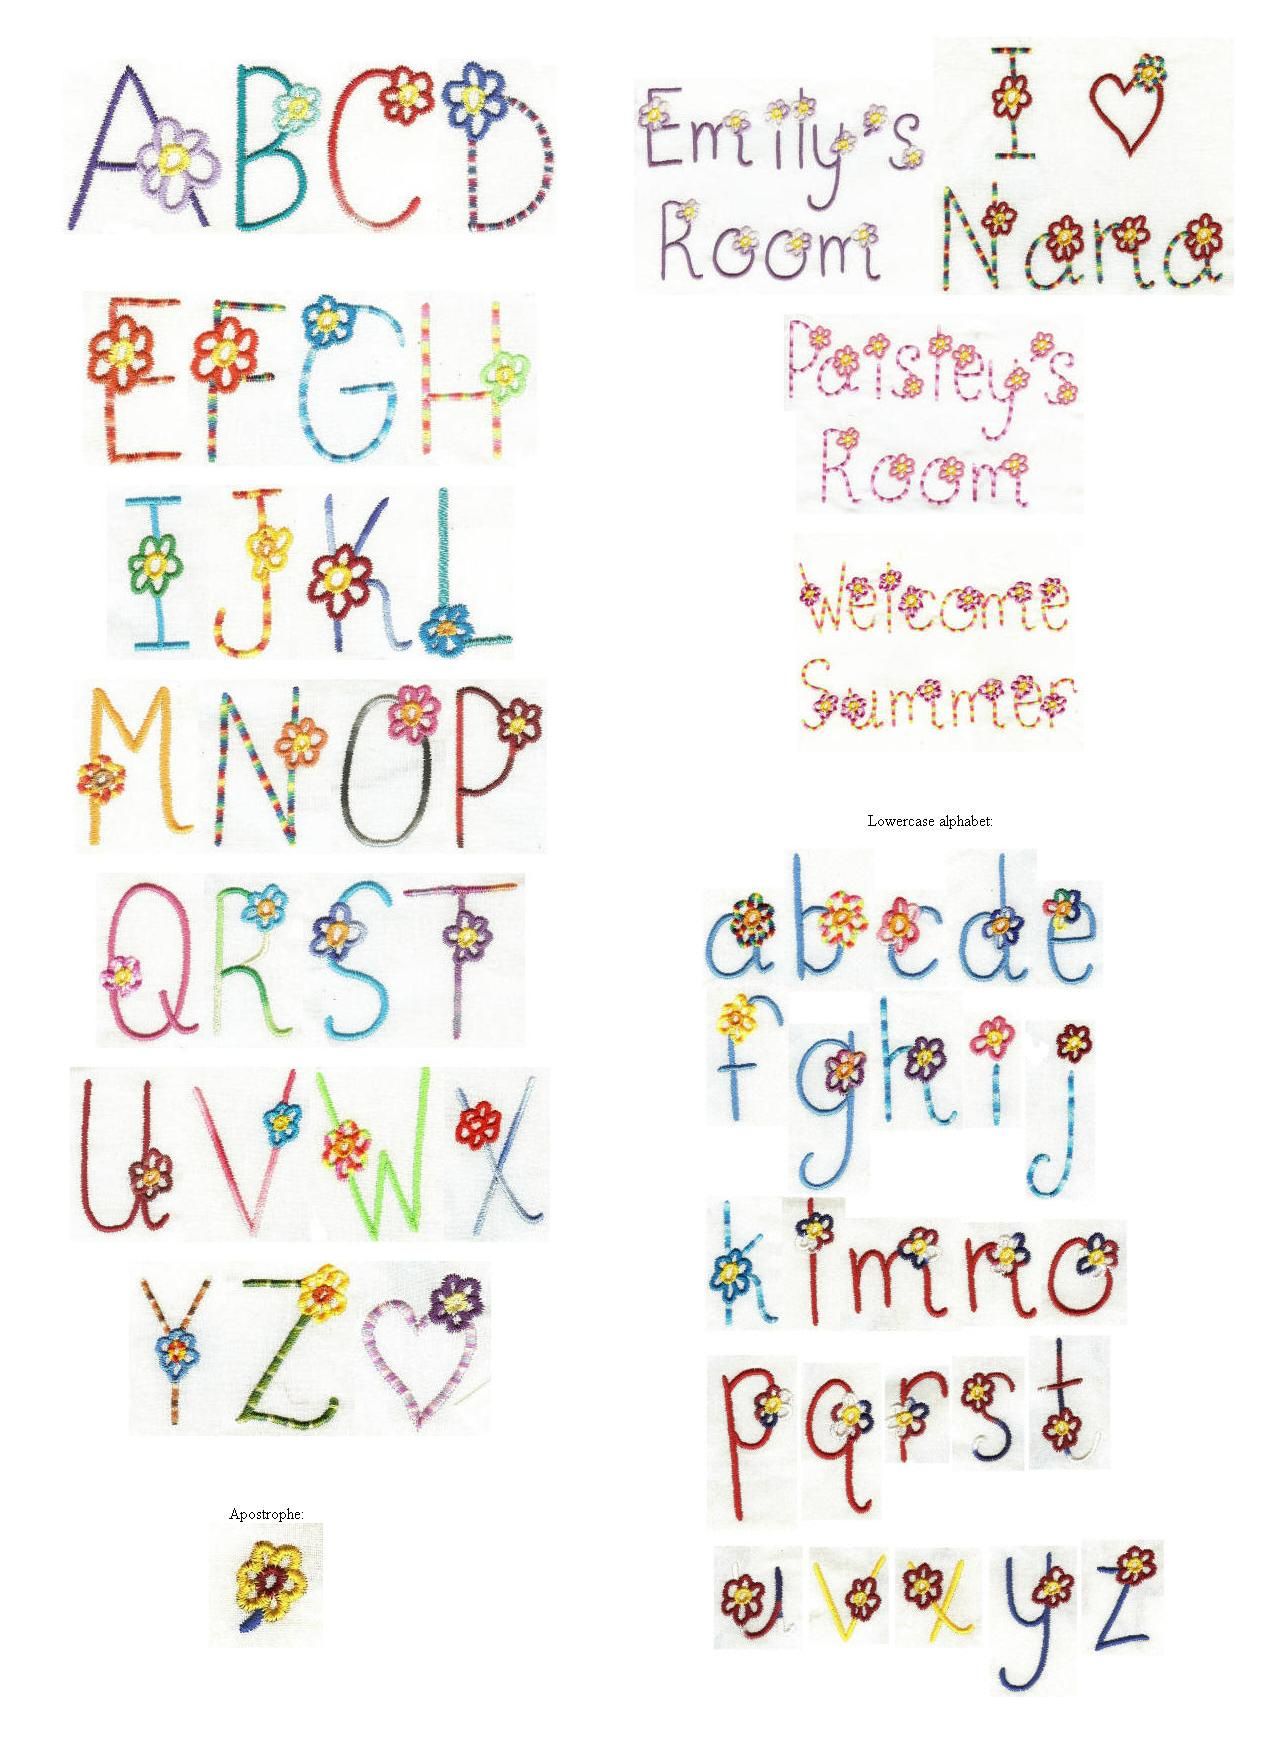 ABCD
EFGH
IJKL
MNOP
QRST
UVWX
YZ
Apostrophe:
Emily's
Room
I ♥
Nana
Paisley's
Room
Welcome
Summer
Lowercase alphabet:
abcde
fghij
klmno
pqrst
uvxyz